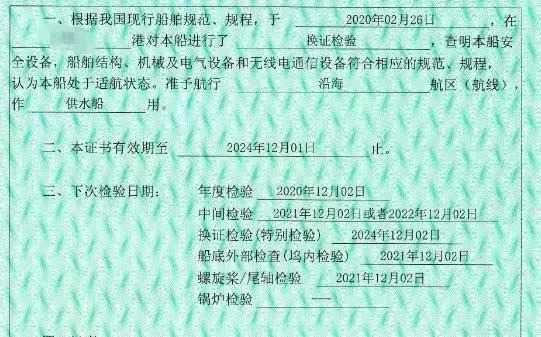 一、根据我国现行船舶规范、规程，于 2020年02月26日 ，在
港对本船进行了 换证检验 ，查明本船安
全设备、船舶结构、机械及电气设备和无线电通信设备符合相应的规范、规程，
认为本船处于适航状态。准予航行 沿海 航区（航线），
作 供水船 用。
二、本证书有效期至 2024年12月01日 止。
三、下次检验日期： 年度检验 2020年12月02日
中间检验 2021年12月02日或者2022年12月02日
换证检验(特别检验) 2024年12月02日
船底外部检查(坞内检验) 2021年12月02日
螺旋桨/尾轴检验 2021年12月02日
锅炉检验 ——